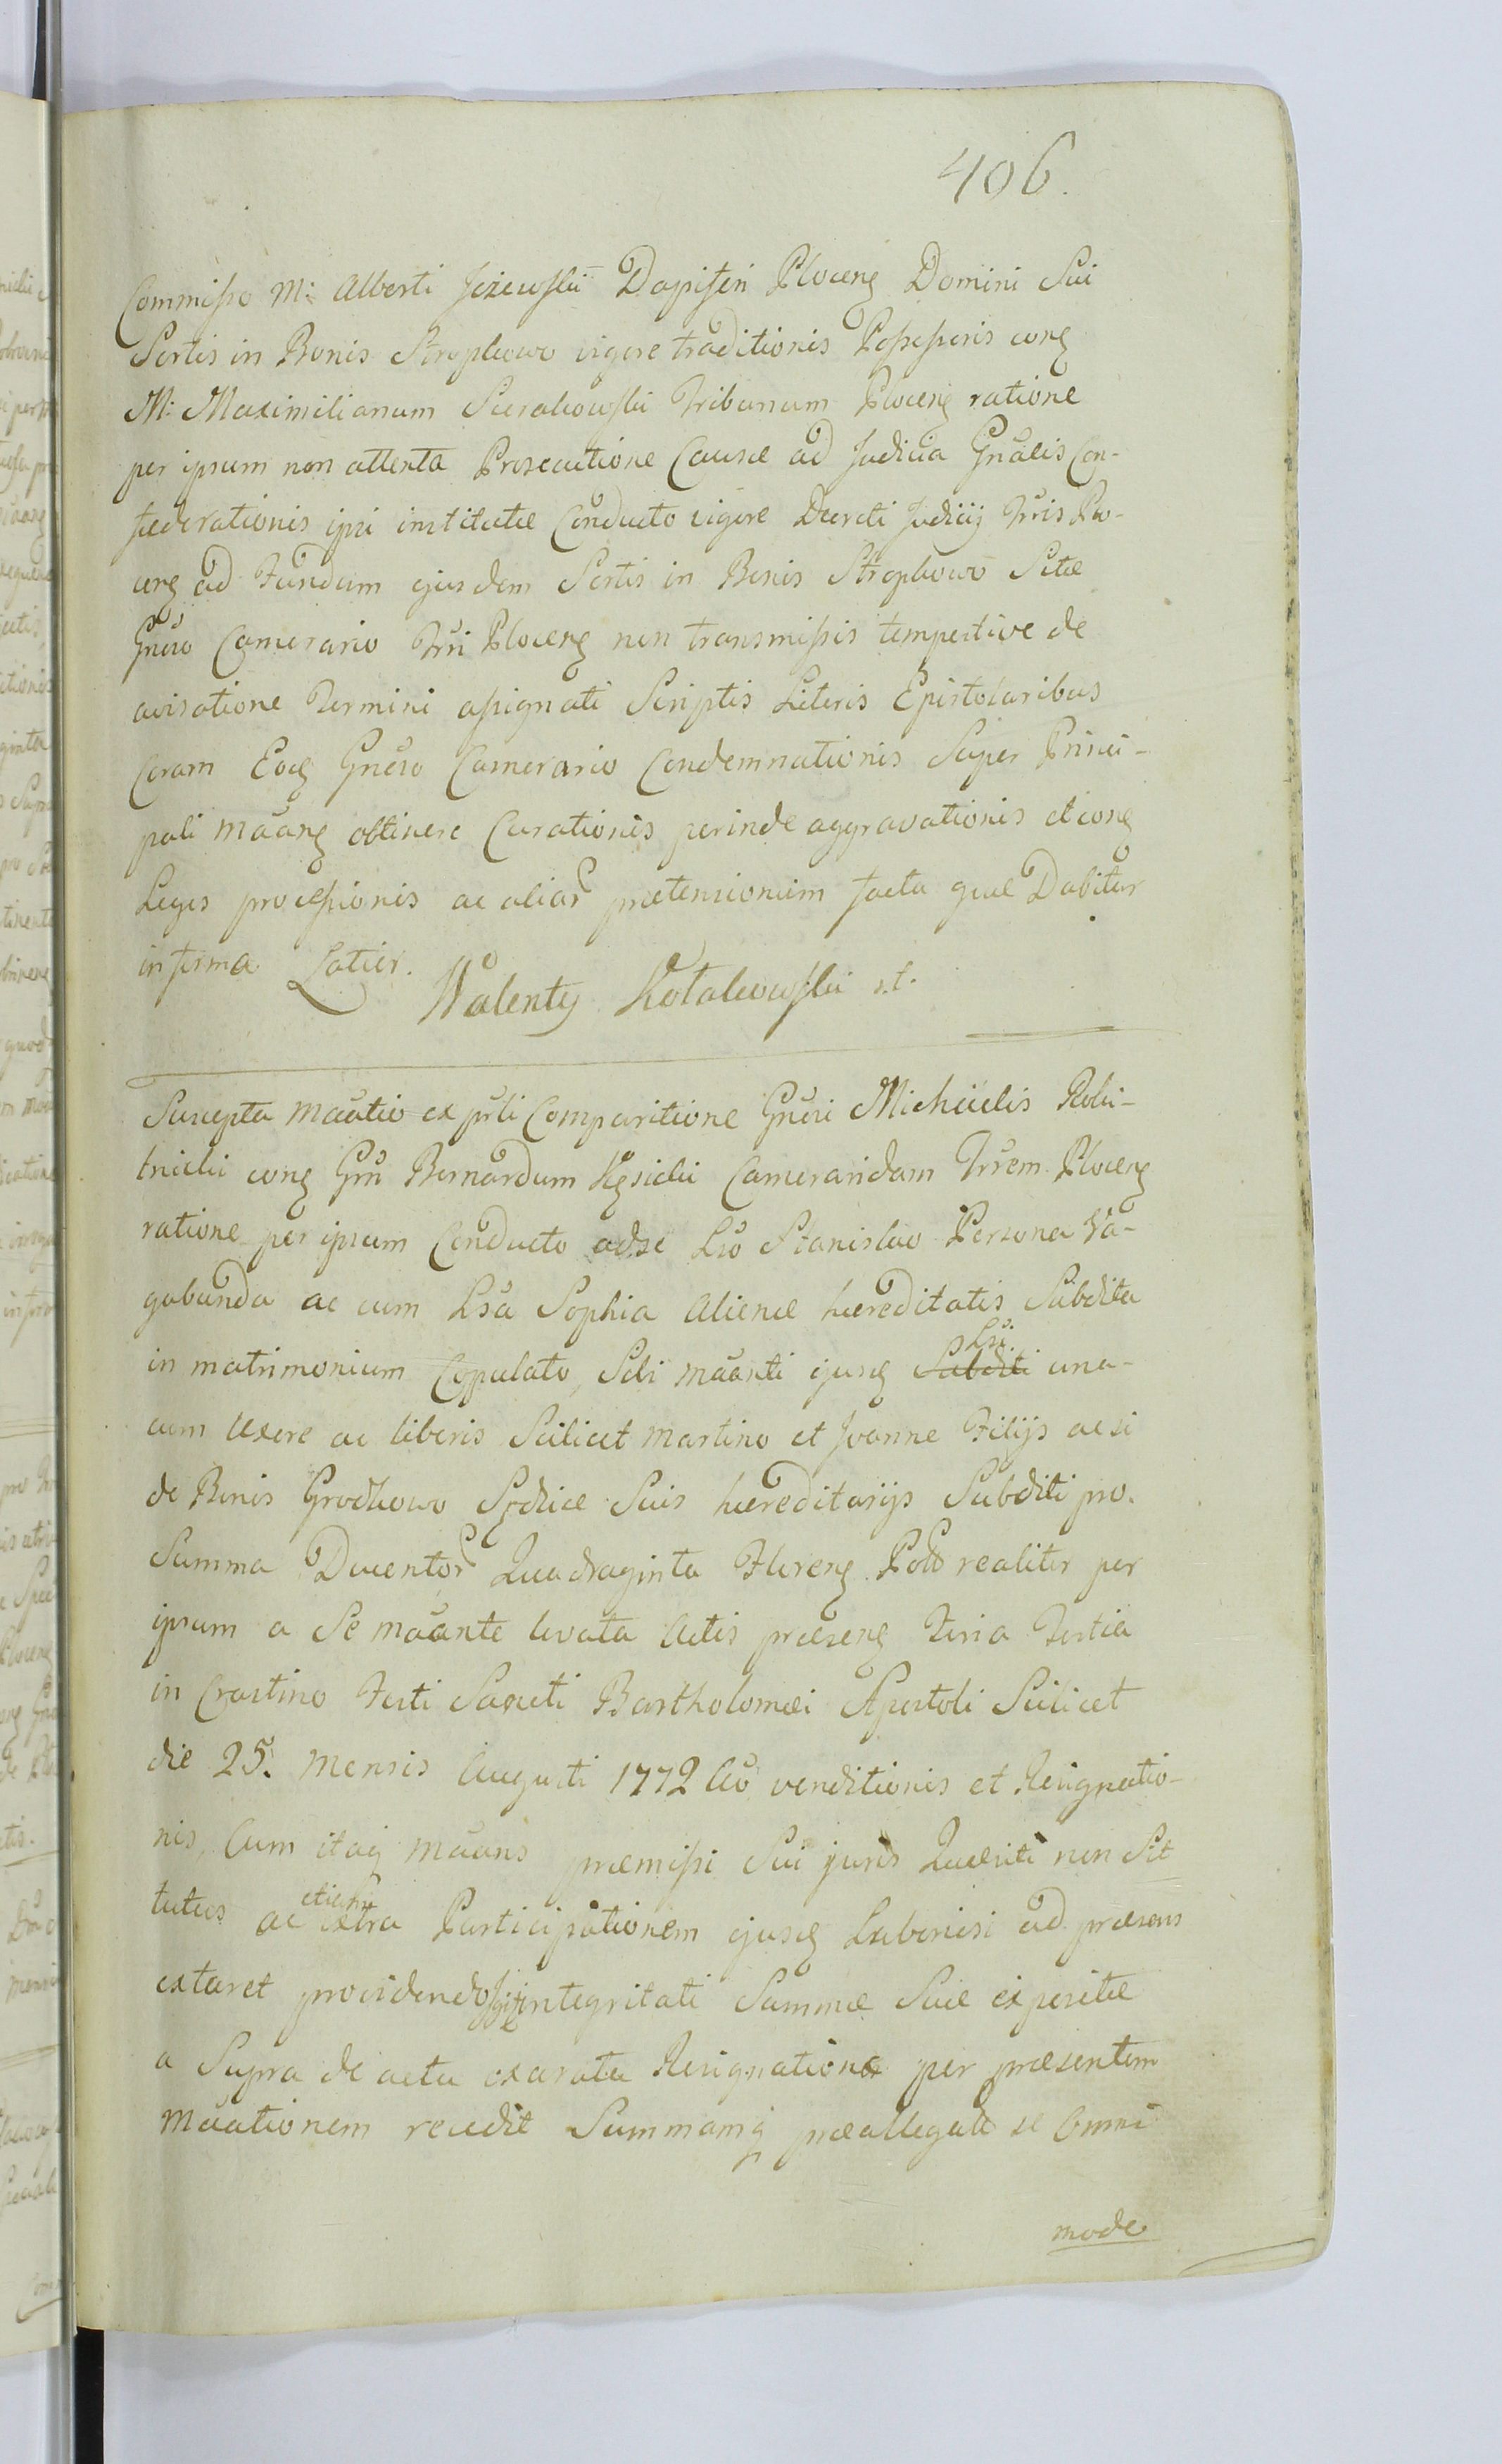 406.
Commisso M: Alberti Jeżewski Dapiferi Plocen͡ Domini Sui
Sortis in Bonis Stropkowo vigore traditionis Possessoris con͡
M: Maximilianum Sierakowski Tribunum Plocen͡ ratione
per ipsum non attenta Prosecutione Causæ ad Judicia Gn̄alis Con-
fœderationis ipsi institutæ Conducto vigore Decreti Judicij Trr̄is Plo-
cen͡ ad Fundum ejusdem Sortis in Bonis Stropkowo Sitæ
Gn̄oso Camerario Trr̄i Plocen͡ non transmissis tempestive de
avisatione Termini assignati Scriptis Literis Epistolaribus
Coram Eod͡ Gn̄oso Camerario Condemnationis Super Princi-
pali ma͞an͡ obtinere Curationis perinde aggravationis et con͡
Leges processionis ac aliar͡ prætensionum facta quæ Dabitur
in forma Latior.
Walenty Kotakowski s.t.
Suscepta ma͞atio ex pn̄ti Comparitione Gn̄osi Michaelis Robi-
tnicki con͡ Gn̄ Bernardum Kęsicki Cameraridam Trr̄em Plocen͡
ratione per ipsum Conducto ad se Lso Stanislao Persona Va-
gabunda ac cum Lsa Sophia alienæ hæreditatis Subdita
in matrimonium Copulato, Sibi ma͞anti ejusd͡ Subditi Lsi. una-
cum Uxore ac liberis Scilicet Martino et Joanne Filijs ac si
de Bonis Grodkowo Sędzice Suis hæreditarijs Subditi pro.
Summa Ducentor͡ Quadraginta Floren͡ Pold realiter per
ipsum a Se ma͞ante levata Actis præsen͡ Feria Tertia
in Crastino Festi Sancti Bartholomæi Apostoli Scilicet
die 25. Mensis Augusti 1772 Ao venditionis et Resignatio-
nis, Cum itaq͡ ma͞ans præmissi Sui juris Quæsiti non Sit
tutus ac etiam extra Participationem ejusd͡ Laboriosi ad præsens
extaret providendo integritati Summæ Suæ expositæ
a Supra de actu exarata Resignatione per præsentem
Ma͞ationem recedit Summamq͡ præallegatā se omni
mode